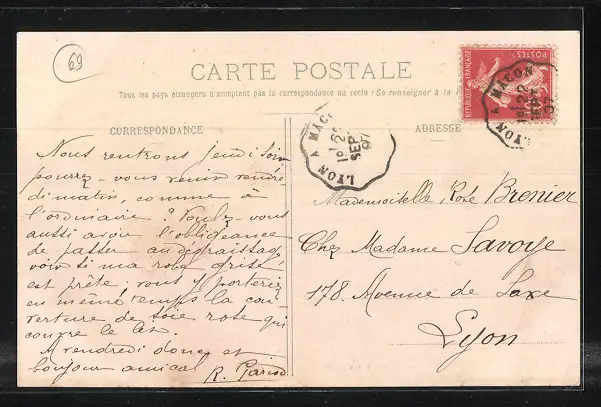 69
CARTE POSTALE
Tous les pays étrangers n'acceptent pas la correspondance au recto (Se renseigner à la P
CORRESPONDANCE
ADRESSE
REPUBLIQUE FRANÇAISE
POSTES
LYON A MACON
1º 22
SEPT
07
LYON A MAC
1º 22
SEPT
07
Nous rentrons jeudi soir
pourrez-vous venir vendre
di matin, comme à
l'ordinaire ? Voulez-vous
aussi avoir l'obligeance
de passer au dégraissage
voir si ma robe grise
est prête, vous y porteriez
en même temps la cou
verture de soie rose qui
couvre le lit.
A vendredi donc et
bonjour amical
R.
Mademoiselle Rose Brenier
Chez Madame Savoye
178. Avenue de Saxe
Lyon